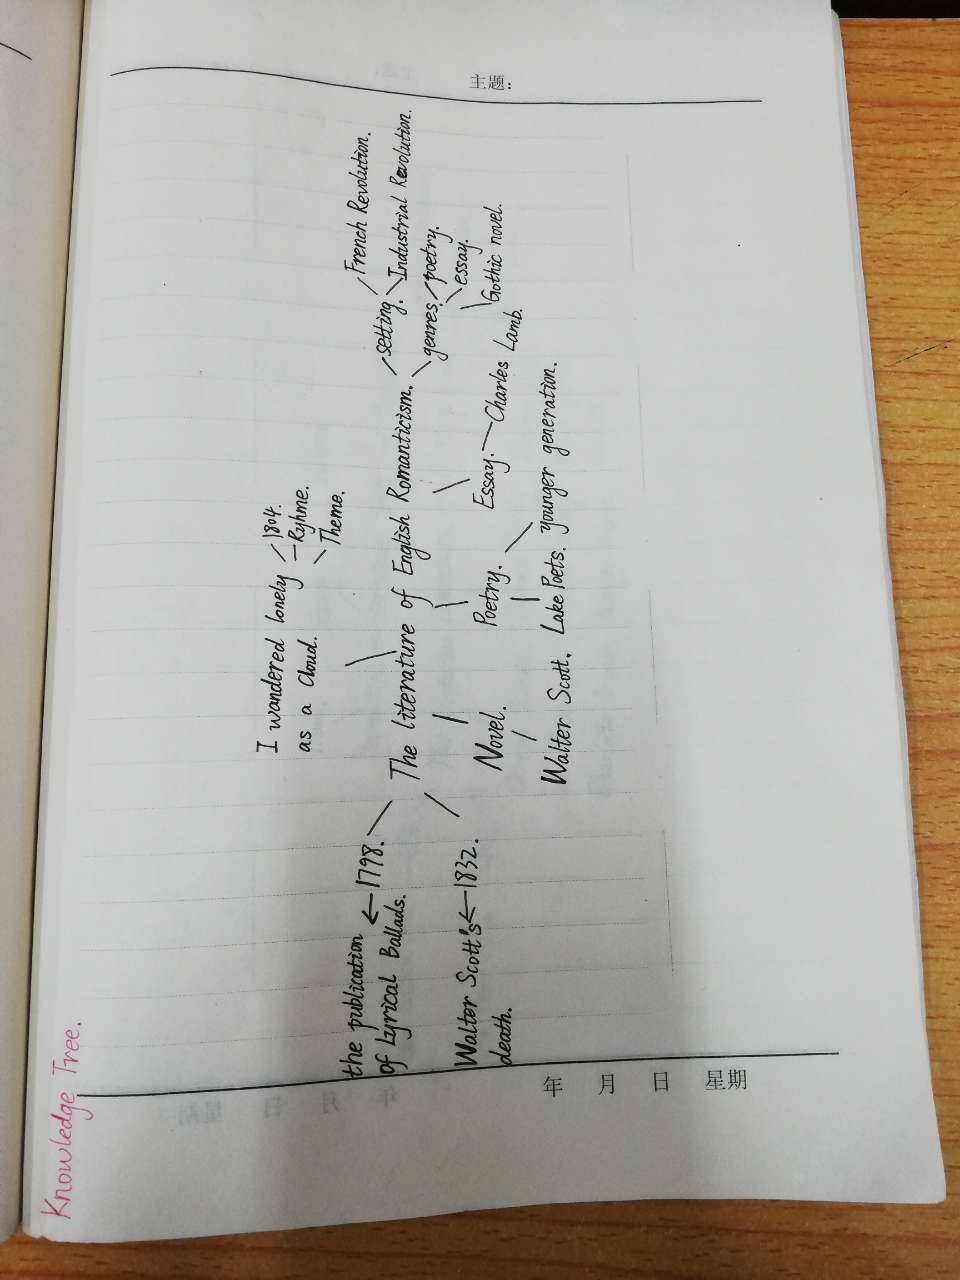 Knowledge Tree.
主题:
年 月 日 星期
I wandered lonely
as a Cloud.
1804.
Ryhme.
Theme.
the publication
of Lyrical Ballads.
1798.
Walter Scott's
death.
1832.
The literature of English Romanticism.
setting.
French Revolution.
Industrial Revolution.
genres.
poetry.
essay.
Gothic novel.
Novel.
Walter Scott.
Poetry.
Lake Poets.
younger generation.
Essay.
Charles Lamb.